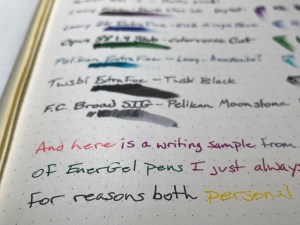 Lamy Extra Fine -
Opus 88 1.4 Stub - Colorverse Cat
Pelikan Extra Fine - Lamy
Twsbi Extra Fine - Twsbi Black
F.C. Broad SIG - Pelikan Moonstone
And here is a writing sample from
of EnerGel pens I just always
for reasons both personal